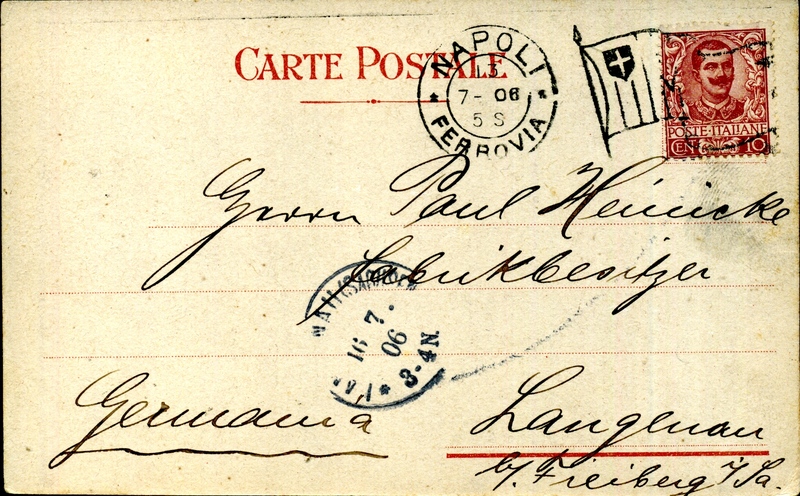 CARTE POSTALE
NAPOLI
13
7- 06
5 S
* FERROVIA *
POSTE·ITALIANE
CEN. 10
Herrn Paul Heinicke
Fabrikbesitzer
16 7.
06
* 3-4N.
Germania
Langenau
b/ Freiberg i/ Sa.